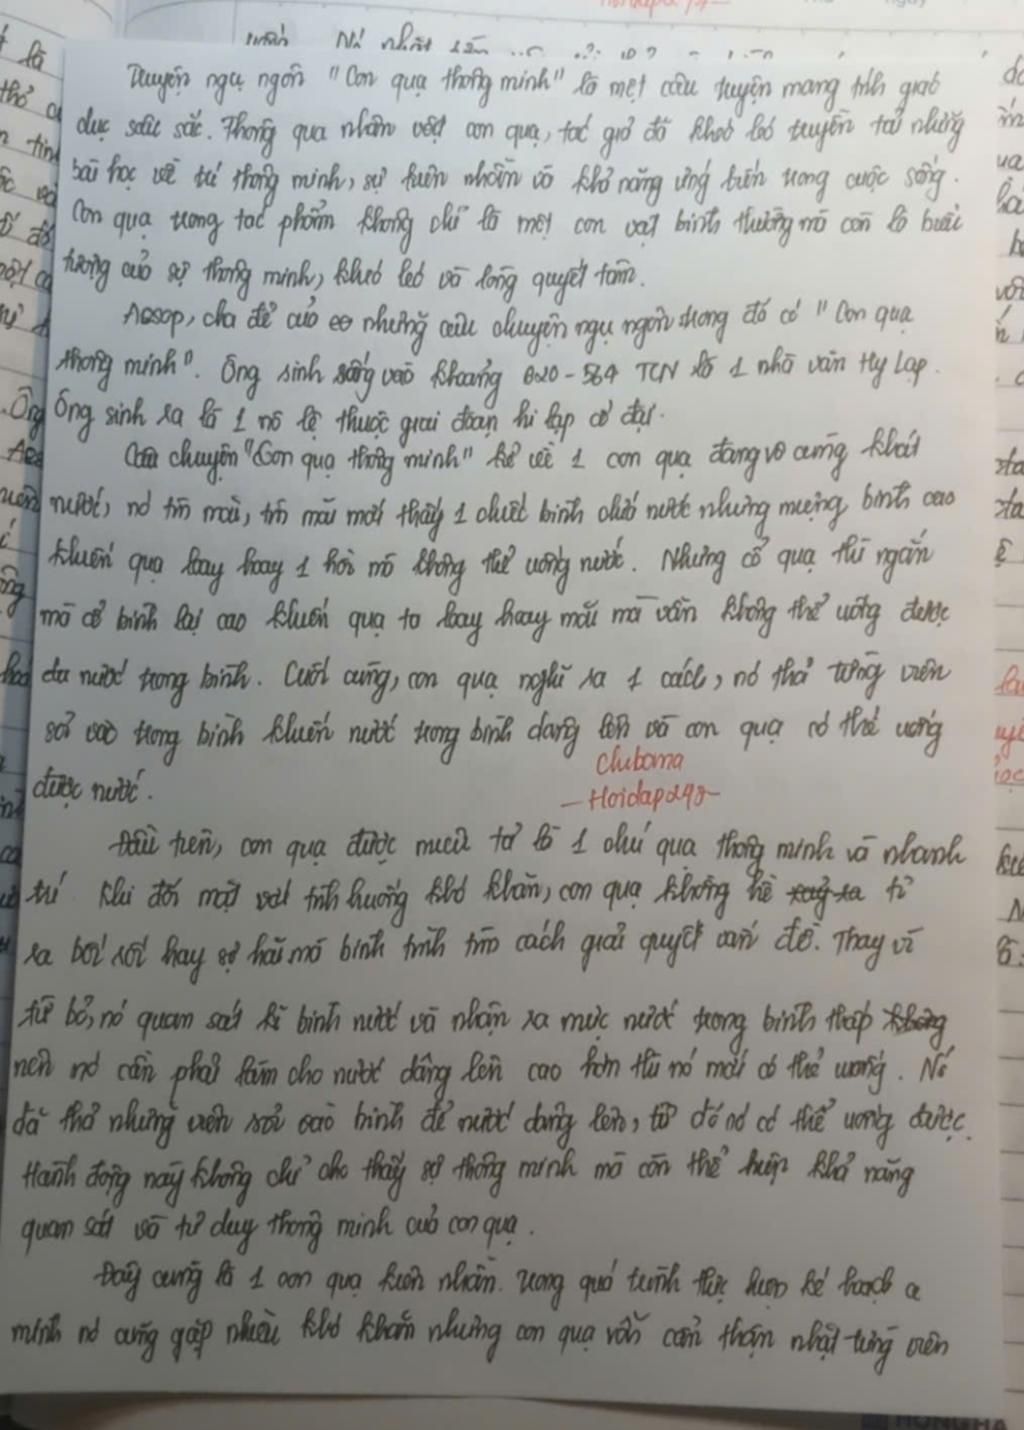 Truyện ngụ ngôn "Con quạ thông minh" là một câu truyện mang tính giáo
dục sâu sắc. Thông qua nhân vật con quạ, tác giả đã khéo léo truyền tải những
bài học về trí thông minh, sự kiên nhẫn và khả năng ứng biến trong cuộc sống.
Con quạ trong tác phẩm không chỉ là một con vật bình thường mà còn là biểu
tượng của sự thông minh, khéo léo và lòng quyết tâm.
Aesop, cha đẻ của những câu chuyện ngụ ngôn trong đó có "Con quạ
thông minh". Ông sinh sống vào khoảng 620-564 TCN là 1 nhà văn Hy Lạp.
Ông sinh ra là 1 nô lệ thuộc giai đoạn hi lạp cổ đại.
Câu chuyện "Con quạ thông minh" kể về 1 con quạ đang vô cùng khát
nước, nó tìm mãi, tìm mãi mới thấy 1 chiếc bình chứa nước nhưng miệng bình cao
khiến quạ loay hoay 1 hồi mà không thể uống nước. Nhưng cổ quạ thì ngắn
mà cổ bình lại cao khiến quạ ta loay hoay mãi mà vẫn không thể uống được
nước trong bình. Cuối cùng, con quạ nghĩ ra 1 cách, nó thả từng viên
sỏi vào trong bình khiến nước trong bình dâng lên và con quạ có thể uống
được nước.
Chiboma
- Hoidap247 -
Đầu tiên, con quạ được miêu tả là 1 chú quạ thông minh và nhanh
trí. Khi đối mặt với tình huống khó khăn, con quạ không hề tỏ
ra bối rối hay sợ hãi mà bình tĩnh tìm cách giải quyết vấn đề. Thay vì
từ bỏ, nó quan sát kĩ bình nước và nhận ra mực nước trong bình thấp
nên nó cần phải làm cho nước dâng lên cao hơn thì nó mới có thể uống. Nó
đã thả những viên sỏi vào bình để nước dâng lên, từ đó nó có thể uống được.
Hành động này không chỉ cho thấy sự thông minh mà còn thể hiện khả năng
quan sát và tư duy thông minh của con quạ.
Đây cũng là 1 con quạ kiên nhẫn. Trong quá trình thực hiện kế hoạch
mình nó cũng gặp nhiều khó khăn nhưng con quạ vẫn cẩn thận nhặt từng viên
HONG HA